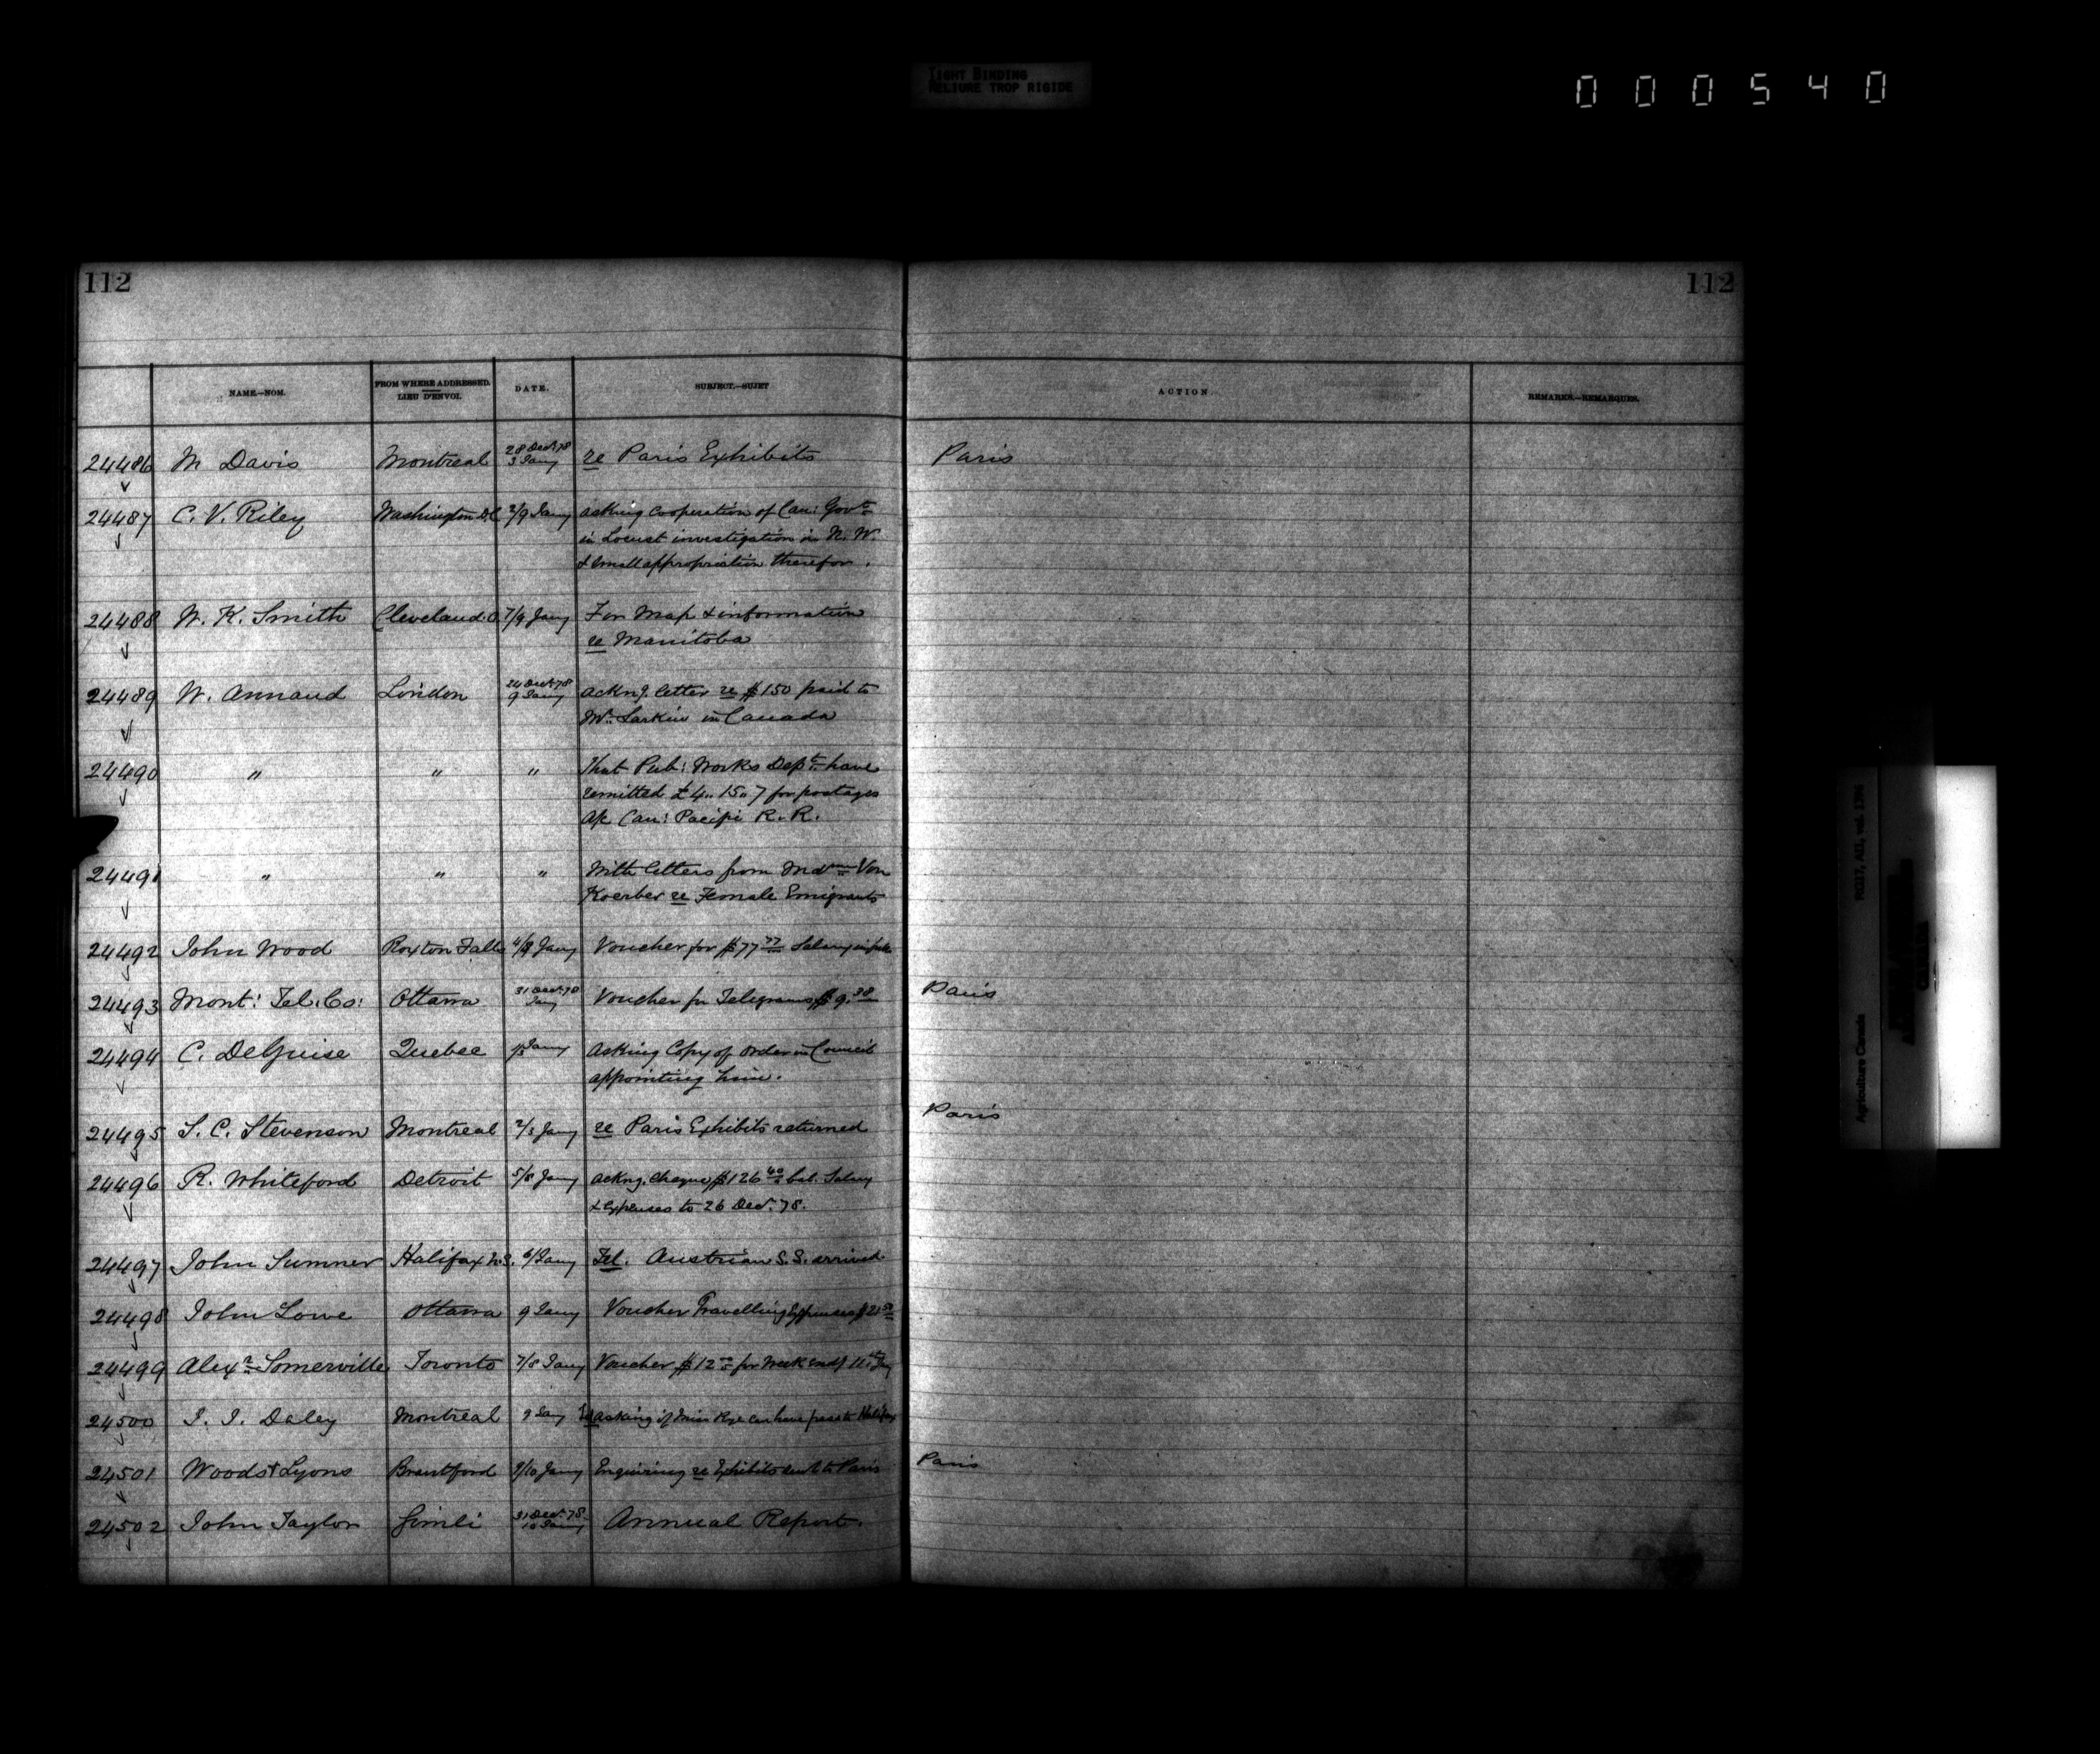 TIGHT BINDING
RELIURE TROP RIGIDE
000540
112
112
NAME.—NOM.
FROM WHERE ADDRESSED.
LIEU D'ENVOI.
DATE.
SUBJECT.—SUJET
ACTION
REMARKS.—REMARQUES.
24486 M Davis Montreal 28 Decr. 78 3 Jany re Paris Exhibits Paris
24487 C. V. Riley Washington D.C. 2/9 Jany asking cooperation of Can: Govt.
in Locust investigation in N. W.
& small appropriation therefor.
24488 W. K. Smith Cleveland O. 7/9 Jany For Map & information
re Manitoba
24489 W. Annand London 24 Decr. 78 9 Jany ackng. letter re $150 paid to
Mr. Larkin in Canada
24490 " " " That Pub: Works Dept. have
remitted £4,, 15,, 7 for postages
a/c Can: Pacific R. R.
24491 " " " With letters from Mdme. Von
Koerber re Female Emigrants
24492 John Wood Roxton Falls 4/8 Jany Voucher for $77 77 Salary in full
24493 Mont: Tel. Co: Ottawa 31 Decr. 78 Jany Voucher for Telegrams $9.38 Paris
24494 C. DeGuise Quebec Jany asking Copy of order in Council
appointing him.
24495 S. C. Stevenson Montreal 2/3 Jany re Paris Exhibits returned Paris
24496 R. Whiteford Detroit 5/8 Jany ackng. cheque $126 40 bal. Salary
& expenses to 26 Decr. 78.
24497 John Sumner Halifax N.S. 6/ Jany Tel. Austrian S.S. arrived
24498 John Lowe Ottawa 9 Jany Voucher Travelling Expenses $21 50
24499 Alexr. Somerville Toronto 7/8 Jany Voucher $12 for Week endg 11th Jany
24500 J. J. Daley Montreal 9 Jany Tel asking if Miss Rye can have pass to Halifax
24501 Woods & Lyons Brantford 9/10 Jany Enquiring re Exhibits sent to Paris Paris
24502 John Taylor Gimli 31 Decr. 78 10 Jany Annual Report.
RG17, AII, vol. 1396
Agriculture Canada